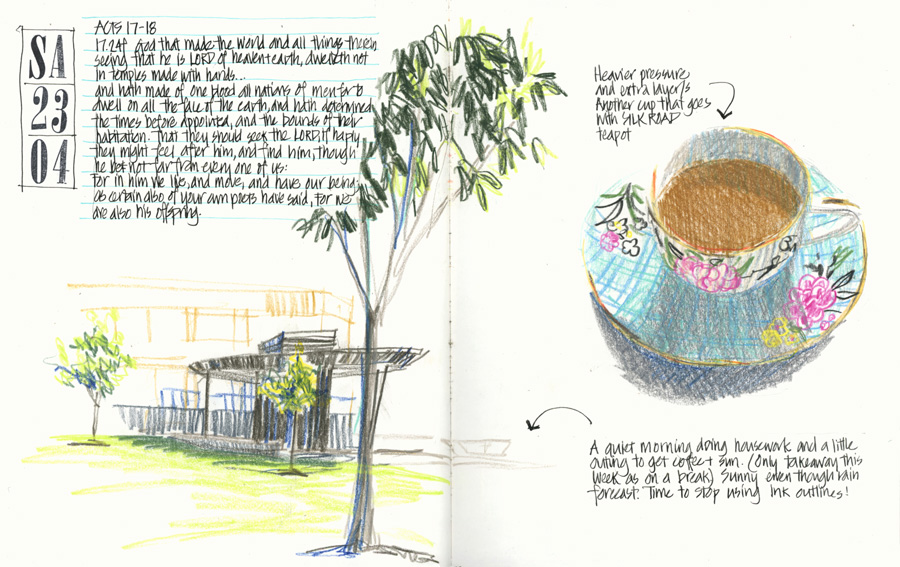 SA
23
04
ACTS 17-18
17.24f God that made the world and all things therein
seeing that he is LORD of heaven+earth, dwelleth not
in temples made with hands...
and hath made of one blood all nations of men for to
dwell on all the face of the earth, and hath determined
the times before appointed, and the bounds of their
habitation. That they should seek the LORD, if haply
they might feel after him, and find him, though
he be not far from every one of us:
For in him we live, and move, and have our being;
as certain also of your own poets have said, for we
are also his offspring.
Heavier pressure
and extra layer/s
Another cup that goes
with SILK ROAD
teapot
A quiet morning doing housework and a little
outing to get coffee + sun. (Only takeaway this
week as on a break) Sunny even though rain
forecast. Time to stop using Ink outlines!